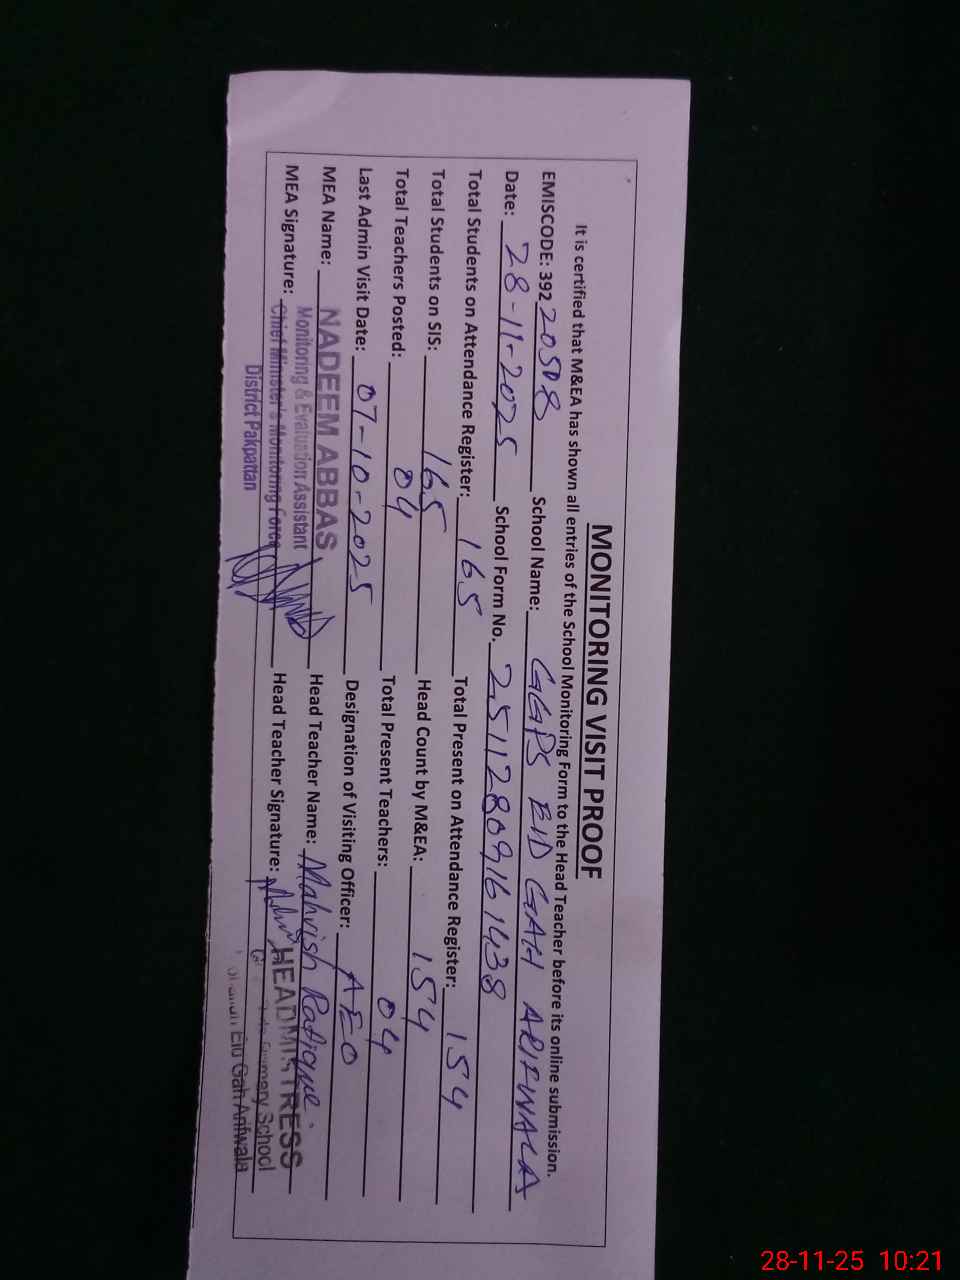 MONITORING VISIT PROOF
It is certified that M&EA has shown all entries of the School Monitoring Form to the Head Teacher before its online submission.
EMISCODE: 392 20508 School Name: GGPS EID GAH ARIFWALA
Date: 28-11-2025 School Form No. 25112809161438
Total Students on Attendance Register: 165 Total Present on Attendance Register: 154
Total Students on SIS: 165 Head Count by M&EA: 154
Total Teachers Posted: 04 Total Present Teachers: 04
Last Admin Visit Date: 07-10-2025 Designation of Visiting Officer: AEO
MEA Name: NADEEM ABBAS Head Teacher Name: Mahvish Rafique.
Monitoring & Evaluation Assistant
MEA Signature: Chief Minister's Monitoring Force Head Teacher Signature: HEADMISTRESS
District Pakpattan
School
Eid Gah Arifwala
28-11-25 10:21